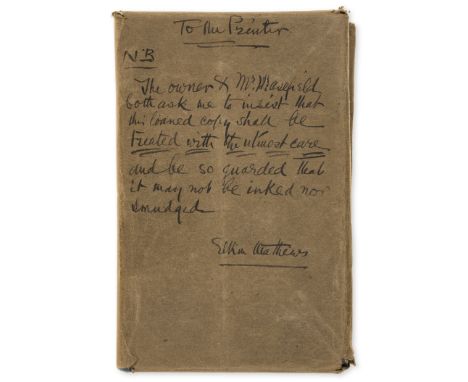 To the Printer
NB
The owner & Mr. Masefield
both ask me to insist that
this loaned copy shall be
treated with the utmost care
and be so guarded that
it may not be inked nor
smudged
Elkin Mathews